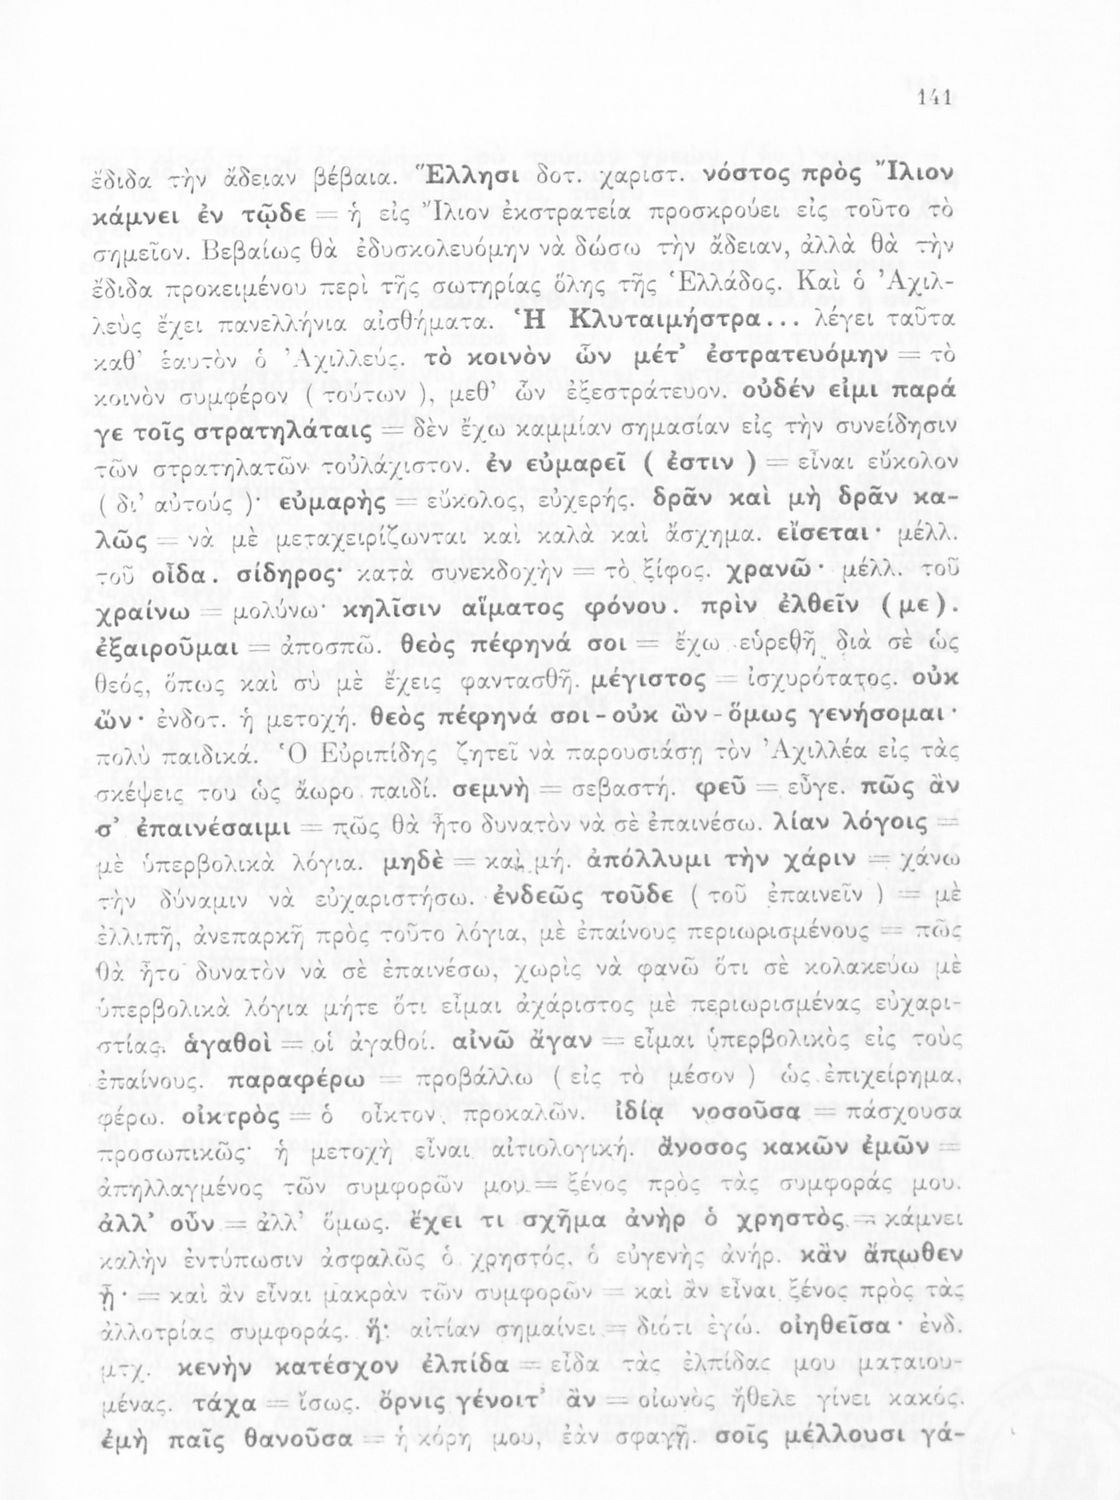 141
ἔδιδα τὴν ἄδειαν βέβαια. Ἕλλησι δοτ. χαριστ. νόστος πρὸς Ἴλιον
κάμνει ἐν τῷδε = ἡ εἰς Ἴλιον ἐκστρατεία προσκρούει εἰς τοῦτο τὸ
σημεῖον. Βεβαίως θὰ ἐδυσκολευόμην νὰ δώσω τὴν ἄδειαν, ἀλλὰ θὰ τὴν
ἔδιδα προκειμένου περὶ τῆς σωτηρίας ὅλης τῆς Ἑλλάδος. Καὶ ὁ Ἀχιλ-
λεὺς ἔχει πανελλήνια αἰσθήματα. Ἡ Κλυταιμήστρα... λέγει ταῦτα
καθ' ἑαυτὸν ὁ Ἀχιλλεύς. τὸ κοινὸν ὧν μέτ' ἐστρατευόμην = τὸ
κοινὸν συμφέρον ( τούτων ), μεθ' ὧν ἐξεστράτευον. οὐδέν εἰμι παρά
γε τοῖς στρατηλάταις = δὲν ἔχω καμμίαν σημασίαν εἰς τὴν συνείδησιν
τῶν στρατηλατῶν τοὐλάχιστον. ἐν εὐμαρεῖ ( ἐστιν ) = εἶναι εὔκολον
( δι' αὐτούς )· εὐμαρὴς = εὔκολος, εὐχερής. δρᾶν καὶ μὴ δρᾶν κα-
λῶς = νὰ μὲ μεταχειρίζωνται καὶ καλὰ καὶ ἄσχημα. εἴσεται· μέλλ.
τοῦ οἶδα. σίδηρος· κατὰ συνεκδοχὴν = τὸ ξίφος. χρανῶ· μέλλ. τοῦ
χραίνω = μολύνω· κηλῖσιν αἵματος φόνου. πρὶν ἐλθεῖν (με).
ἐξαιροῦμαι = ἀποσπῶ. θεὸς πέφηνά σοι = ἔχω εὑρεθῆ διὰ σὲ ὡς
θεός, ὅπως καὶ σὺ μὲ ἔχεις φαντασθῆ. μέγιστος = ἰσχυρότατος. οὐκ
ὤν· ἐνδοτ. ἡ μετοχή. θεὸς πέφηνά σοι - οὐκ ὢν - ὅμως γενήσομαι·
πολὺ παιδικά. Ὁ Εὐριπίδης ζητεῖ νὰ παρουσιάσῃ τὸν Ἀχιλλέα εἰς τὰς
σκέψεις του ὡς ἄωρο παιδί. σεμνὴ = σεβαστή. φεῦ = εὖγε. πῶς ἂν
σ' ἐπαινέσαιμι = πῶς θὰ ἦτο δυνατὸν νὰ σὲ ἐπαινέσω. λίαν λόγοις =
μὲ ὑπερβολικὰ λόγια. μηδὲ = καὶ μή. ἀπόλλυμι τὴν χάριν = χάνω
τὴν δύναμιν νὰ εὐχαριστήσω. ἐνδεῶς τοῦδε ( τοῦ ἐπαινεῖν ) = μὲ
ἐλλιπῆ, ἀνεπαρκῆ πρὸς τοῦτο λόγια, μὲ ἐπαίνους περιωρισμένους = πῶς
θὰ ἦτο δυνατὸν νὰ σὲ ἐπαινέσω, χωρὶς νὰ φανῶ ὅτι σὲ κολακεύω μὲ
ὑπερβολικὰ λόγια μήτε ὅτι εἶμαι ἀχάριστος μὲ περιωρισμένας εὐχαρι-
στίας. ἁγαθοὶ = οἱ ἀγαθοί. αἰνῶ ἄγαν = εἶμαι ὑπερβολικὸς εἰς τοὺς
ἐπαίνους. παραφέρω = προβάλλω ( εἰς τὸ μέσον ) ὡς ἐπιχείρημα,
φέρω. οἰκτρὸς = ὁ οἶκτον προκαλῶν. ἰδίᾳ νοσοῦσα = πάσχουσα
προσωπικῶς· ἡ μετοχὴ εἶναι αἰτιολογική. ἄνοσος κακῶν ἐμῶν =
ἀπηλλαγμένος τῶν συμφορῶν μου = ξένος πρὸς τὰς συμφοράς μου.
ἀλλ' οὖν = ἀλλ' ὅμως. ἔχει τι σχῆμα ἀνὴρ ὁ χρηστὸς = κάμνει
καλὴν ἐντύπωσιν ἀσφαλῶς ὁ χρηστός, ὁ εὐγενὴς ἀνήρ. κἂν ἄπωθεν
ᾖ· = καὶ ἂν εἶναι μακρὰν τῶν συμφορῶν = καὶ ἂν εἶναι ξένος πρὸς τὰς
ἀλλοτρίας συμφοράς. ἥ· αἰτίαν σημαίνει = διότι ἐγώ. οἰηθεῖσα· ἐνδ.
μτχ. κενὴν κατέσχον ἐλπίδα = εἶδα τὰς ἐλπίδας μου ματαιου-
μένας. τάχα = ἴσως. ὄρνις γένοιτ' ἂν = οἰωνὸς ἤθελε γίνει κακός.
ἐμὴ παῖς θανοῦσα = ἡ κόρη μου, ἐὰν σφαγῇ. σοῖς μέλλουσι γά-